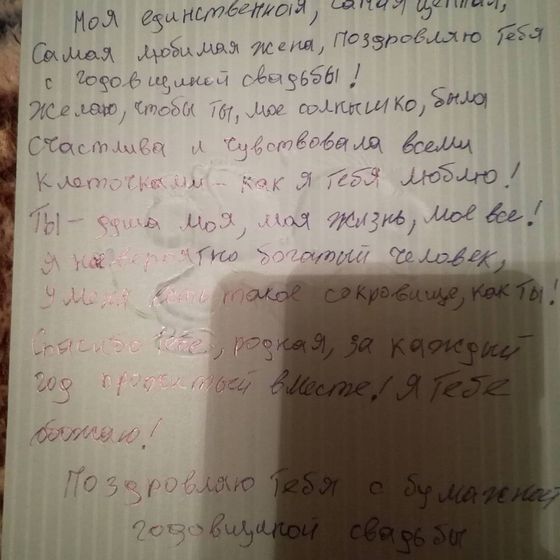 Моя единственная, самая ценная,
Самая любимая жена, поздровляю Тебя
с годовщиной свадьбы!
Желаю, чтобы Ты, мое солнышко, была
счастлива и чувствовала всеми
клеточками - как я Тебя люблю!
Ты - душа моя, моя жизнь, мое все!
Я невероятно богатый человек,
у меня есть такое сокровище, как Ты!
Спасибо Тебе, родная, за каждый
год прожитый вместе! Я Тебе
божаю!
Поздровляю Тебя с бумажной
годовщиной свадьбы